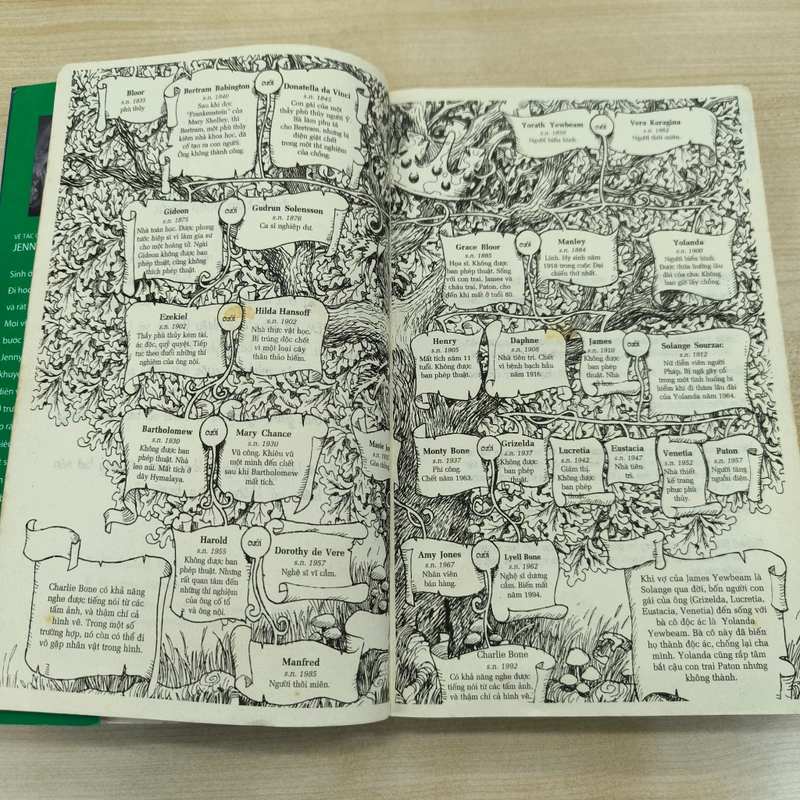 Bloor
s.n. 1835
phù thủy
Bertram Babington
s.n. 1840
Sau khi đọc
"Frankenstein" của
Mary Shelley, thì
Bertram, một phù thủy
kiêm nhà khoa học, đã
cố tạo ra con người.
Ông không thành công.
cưới
Donatella da Vinci
s.n. 1843
Con gái của một
thầy phù thủy người Ý.
Bà làm phụ tá
cho Bertram, nhưng bị
điện giật chết
trong một thí nghiệm
của chồng.
Gideon
s.n. 1875
Nhà toán học. Được phong
tước hiệp sĩ vì làm gia sư
cho một hoàng tử. Ngài
Gideon không được ban
phép thuật, cũng không
thích phép thuật.
cưới
Gudrun Solensson
s.n. 1876
Ca sĩ nghiệp dư.
Ezekiel
s.n. 1902
Thầy phù thủy kém tài,
ác độc, quỷ quyệt. Tiếp
tục theo đuổi những thí
nghiệm của ông nội.
cưới
Hilda Hansoff
s.n. 1902
Nhà thực vật học.
Bị trúng độc chết
vì một loại cây
thân thảo hiếm.
Bartholomew
s.n. 1930
Không được ban
phép thuật. Nhà
leo núi. Mất tích ở
dãy Hymalaya.
cưới
Mary Chance
s.n. 1930
Vũ công. Khiêu vũ
một mình đến chết
sau khi Bartholomew
mất tích.
Harold
s.n. 1955
Không được ban
phép thuật. Nhưng
rất quan tâm đến
những thí nghiệm
của ông cố tổ
và ông nội.
cưới
Dorothy de Vere
s.n. 1957
Nghệ sĩ vĩ cầm.
Manfred
s.n. 1985
Người thôi miên.
Charlie Bone có khả năng
nghe được tiếng nói từ các
tấm ảnh, và thậm chí cả
hình vẽ. Trong một số
trường hợp, nó còn có thể đi
vô gặp nhân vật trong hình.
Yorath Yewbeam
s.n. 1850
Người biến hình.
cưới
Vera Karagina
Người thôi miên.
Grace Bloor
s.n. 1885
Họa sĩ. Không được
ban phép thuật. Sống
với con trai, James và
cháu trai, Paton, cho
đến khi mất ở tuổi 80.
cưới
Manley
s.n. 1884
Lính. Hy sinh năm
1918 trong cuộc Đại
chiến thứ nhất.
Yolanda
s.n. 1900
Người biến hình.
Được thừa hưởng lâu
đài của cha. Không
bao giờ lấy chồng.
Henry
s.n. 1905
Mất tích năm 11
tuổi. Không được
ban phép thuật.
Daphne
s.n. 1908
Nhà tiên tri. Chết
vì bệnh bạch hầu
năm 1916.
James
s.n. 1910
Không được
ban phép
thuật. Nhà
cưới
Solange Sourzac
s.n. 1912
Nữ diễn viên người
Pháp. Bị ngã gãy cổ
trong một tình huống bí
hiểm khi đi thăm lâu đài
của Yolanda năm 1964.
Monty Bone
s.n. 1937
Phi công.
Chết năm 1963.
cưới
Grizelda
s.n. 1937
Không được
ban phép
thuật.
Lucretia
s.n. 1942
Giám thị.
Không được
ban phép
thuật.
Eustacia
s.n. 1947
Nhà tiên
tri.
Venetia
s.n. 1952
Nhà thiết
kế trang
phục phù
thủy.
Paton
s.n. 1957
Người tăng
nguồn điện.
Amy Jones
s.n. 1967
Nhân viên
bán hàng.
cưới
Lyell Bone
s.n. 1962
Nghệ sĩ dương
cầm. Biến mất
năm 1994.
Charlie Bone
s.n. 1992
Có khả năng nghe được
tiếng nói từ các tấm ảnh, và
thậm chí cả hình vẽ.
Khi vợ của James Yewbeam là
Solange qua đời, bốn người con
gái của ông (Grizelda, Lucretia,
Eustacia, Venetia) đến sống với
bà cô độc ác là Yolanda
Yewbeam. Bà cô này đã biến
họ thành độc ác, chống lại cha
mình. Yolanda cũng rắp tâm
bắt cậu con trai Paton nhưng
không thành.